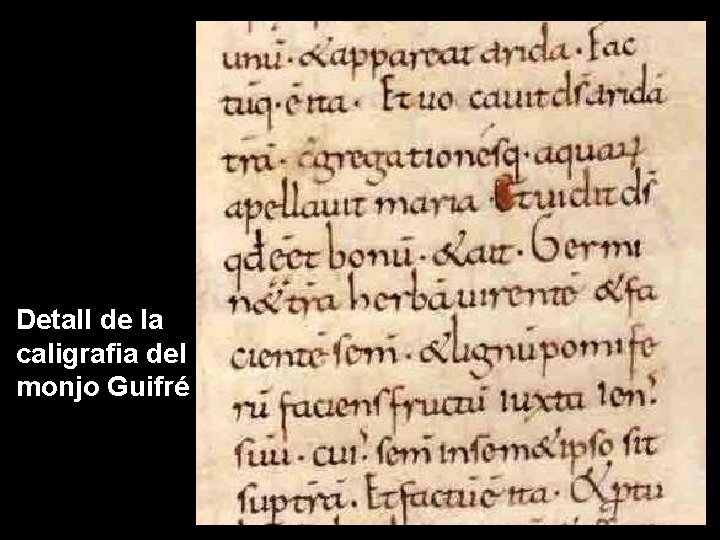 Detall de la
caligrafia del
monjo Guifré
unū · & appareat arida · Fac
tūq · ē ita · Et uocauit ds̄ aridā
trā · c̄gregationesq · aquaꝝ
apellauit maria · Et uidit ds̄
qđ eēt bonū · & ait · Germi
n& trā herbā uirentē & fa
cientē sem̄ · & lignū pomife
rū faciens fructū iuxta
suū · cui' sem̄ in sem&ipso sit
sup trā · Et factū ē ita · &